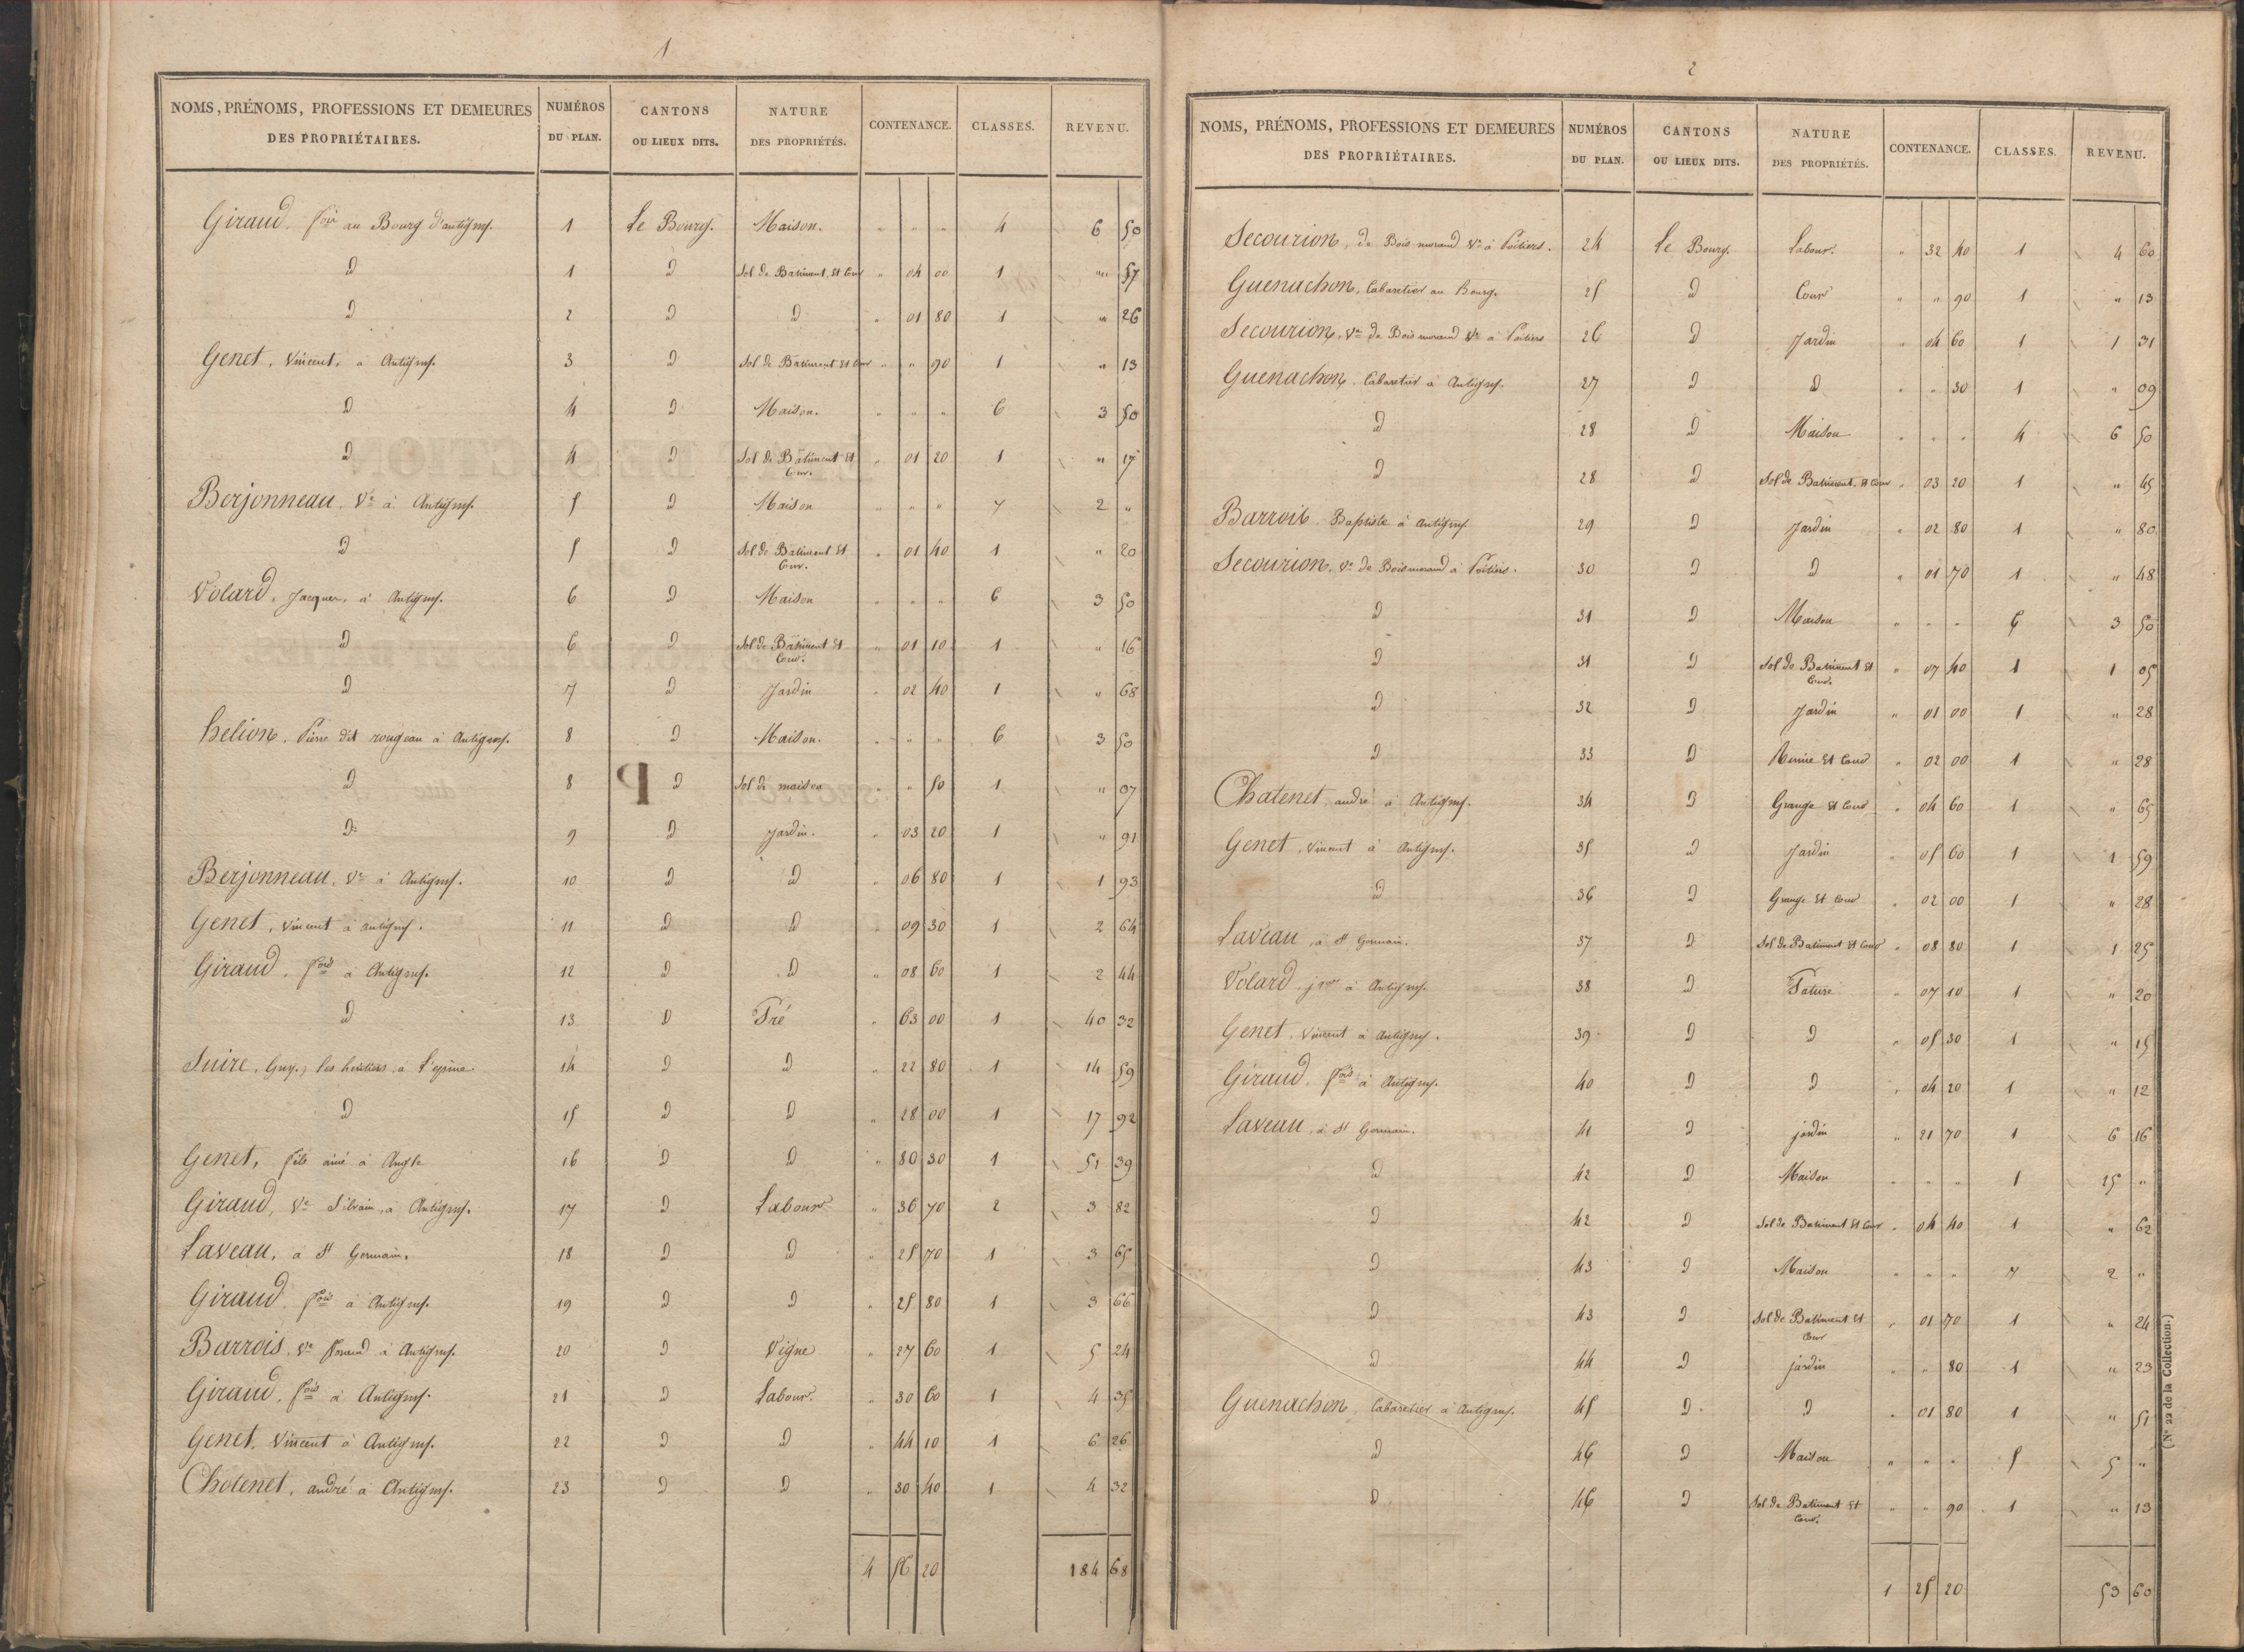 1
NOMS, PRÉNOMS, PROFESSIONS ET DEMEURES DES PROPRIÉTAIRES. NUMÉROS DU PLAN. CANTONS OU LIEUX DITS. NATURE DES PROPRIÉTÉS. CONTENANCE. CLASSES. REVENU.
Giraud, fois au Bourg d'antigny. 1 Le Bourg. Maison. " " " 4 6 50
D 1 D Sol de Batiment, et Cour " 04 00 1 " 57
D 2 D D " 01 80 1 " 26
Genet, Vincent, à Antigny. 3 D Sol de Batiment et Cour " " 90 1 " 13
D 4 D Maison. " " " 6 3 50
D 4 D Sol de Batiment et Cour. " 01 20 1 " 17
Berjonneau, Ve à Antigny. 5 D Maison " " " 7 2 "
D 5 D Sol de Batiment et Cour. " 01 40 1 " 20
Volard, Jacques, à Antigny. 6 D Maison " " " 6 3 50
D 6 D Sol de Batiment et Cour. " 01 10 1 " 16
D 7 D Jardin " 02 40 1 " 68
helion, Pierre dit rougeau à Antigny. 8 D Maison. " " " 6 3 50
D 8 D Sol de maison " " 50 1 " 07
D 9 D Jardin. " 03 20 1 " 91
Berjonneau, Ve à Antigny. 10 D D " 06 80 1 1 93
Genet, Vincent à antigny. 11 D D " 09 30 1 2 64
Giraud, fois à Antigny. 12 D D " 08 60 1 2 44
D 13 D Pré " 63 00 1 40 32
Suire, Guy, les heritiers, à l'epine 14 D D " 22 80 1 14 59
D 15 D D " 28 00 1 17 92
Genet, fils ainé à Angle 16 D D " 80 30 1 51 39
Giraud, Ve Silvain, à Antigny. 17 D Labour " 36 70 2 3 82
Laveau, à St Germain. 18 D D " 25 70 1 3 65
Giraud, fois à Antigny. 19 D D " 25 80 1 3 66
Barrois, Ve à Antigny. 20 D Vigne " 27 60 1 5 24
Giraud, fois à Antigny. 21 D Labour. " 30 60 1 4 35
Genet, Vincent à Antigny. 22 D D " 44 10 1 6 26
Chatenet, andré à Antigny. 23 D D " 30 40 1 4 32
4 56 20 184 68
2
NOMS, PRÉNOMS, PROFESSIONS ET DEMEURES DES PROPRIÉTAIRES. NUMÉROS DU PLAN. CANTONS OU LIEUX DITS. NATURE DES PROPRIÉTÉS. CONTENANCE. CLASSES. REVENU.
Secourion, de Bois-morand Ve à Poitiers. 24 Le Bourg. Labour. " 32 40 1 4 60
Guenachon, Cabaretier au Bourg. 25 D Cour " " 90 1 " 13
Secourion, Ve de Bois morand Ve à Poitiers 26 D Jardin " 04 60 1 1 31
Guenachon, Cabaretier à Antigny. 27 D D " " 30 1 " 09
D 28 D Maison " " " 4 6 50
D 28 D Sol de Batiment, et Cour " 03 20 1 " 45
Barrois, Baptiste à Antigny 29 D Jardin " 02 80 1 " 80
Secourion, Ve de Boismorand à Poitiers. 30 D D " 01 70 1 " 48
D 31 D Maison " " " 6 3 50
D 31 D Sol de Batiment et Cour. " 07 40 1 1 05
D 32 D Jardin " 01 00 1 " 28
D 33 D Remise et Cour " 02 00 1 " 28
Chatenet, andré à Antigny. 34 D Grange et Cour " 04 60 1 " 65
Genet, Vincent à Antigny. 35 D Jardin " 05 60 1 1 59
D 36 D Grange et Cour " 02 00 1 " 28
Laveau, à St Germain. 37 D Sol de Batiment et Cour " 08 80 1 1 25
Volard, jques à Antigny. 38 D Pature " 07 10 1 " 20
Genet, Vincent à Antigny. 39 D D " 05 30 1 " 15
Giraud, fois à Antigny. 40 D D " 04 20 1 " 12
Laveau, à St Germain. 41 D jardin " 21 70 1 6 16
D 42 D Maison " " " 1 25 "
D 42 D Sol de Batiment et Cour " 04 40 1 " 62
D 43 D Maison " " " 7 2 "
D 43 D Sol de Batiment et Cour " 01 70 1 " 24
D 44 D jardin " " 80 1 " 23
Guenachon, Cabaretier à Antigny. 45 D D " 01 80 1 " 51
D 46 D Maison " " " 5 5 "
D 46 D Sol de Batiment et Cour. " " 90 1 " 13
1 25 20 53 60
(N° 22 de la Collection.)